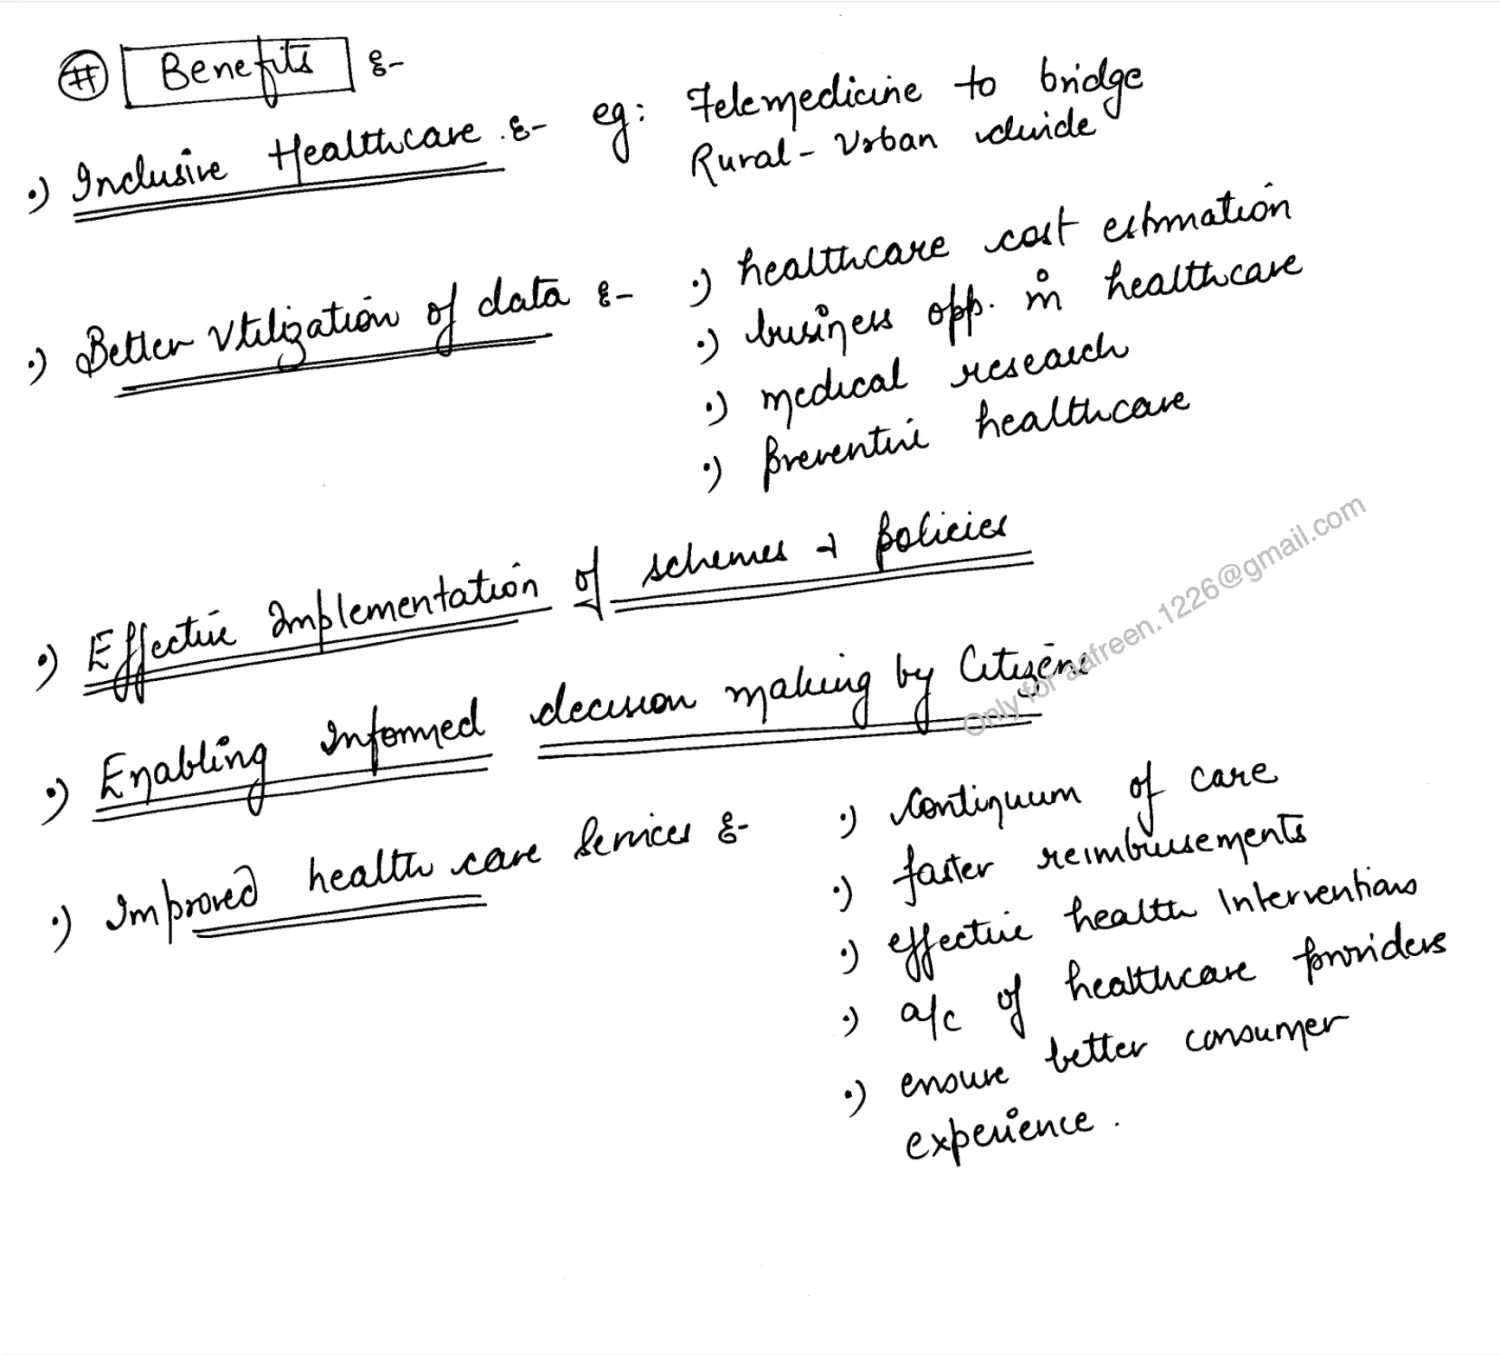 # Benefits :-
•) Inclusive Healthcare :- eg: Telemedicine to bridge
Rural - Urban divide
•) Better Utilization of data :- •) healthcare cost estimation
•) business opp. in healthcare
•) medical research
•) Preventive healthcare
•) Effective Implementation of schemes & policies
•) Enabling Informed decision making by Citizens
Only for aafreen.1226@gmail.com
•) Improved health care Services :- •) Continuum of care
•) faster reimbursements
•) effective health Interventions
•) a/c of healthcare providers
•) ensure better consumer
experience.